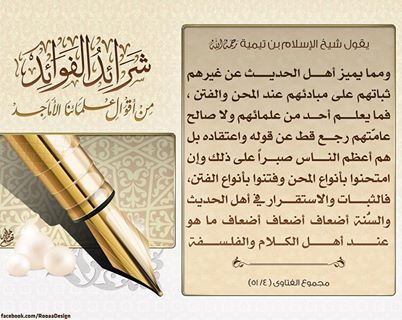 شرائد الفوائد
من أقوال علمائنا الأماجد
يقول شيخ الإسلام بن تيمية رحمه الله
ومما يميز أهل الحديث عن غيرهم
ثباتهم على مبادئهم عند المحن والفتن ،
فما يعلم أحد من علمائهم ولا صالح
عامتهم رجع قط عن قوله واعتقاده بل
هم أعظم الناس صبراً على ذلك وإن
امتحنوا بأنواع المحن وفتنوا بأنواع الفتن،
فالثبات والاستقرار في أهل الحديث
والسنة أضعاف أضعاف أضعاف ما هو
عند أهل الكلام والفلسفة
مجموع الفتاوى (٥١/٤)
facebook.com/RooaaDesign